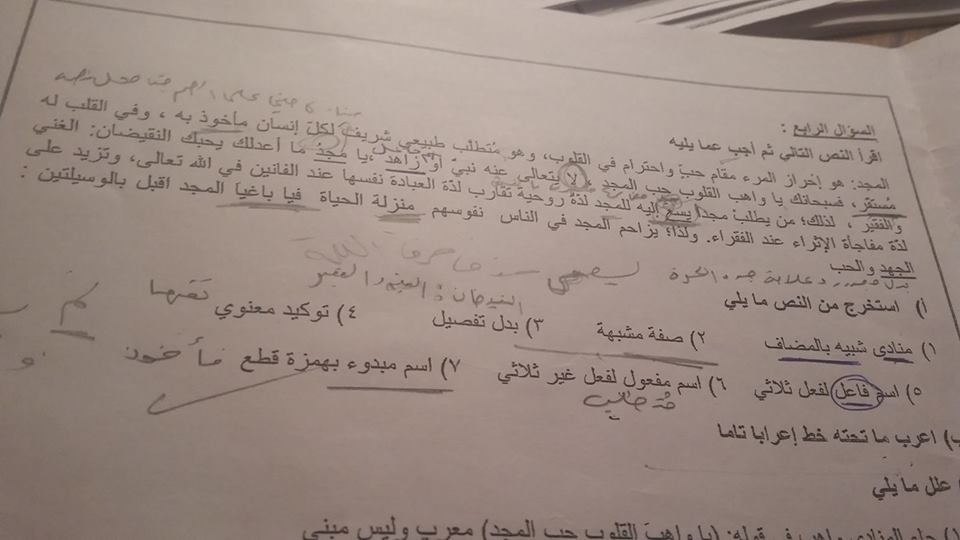 السؤال الرابع :
اقرأ النص التالي ثم أجب عما يليه
المجد: هو إحراز المرء مقام حبّ واحترام في القلوب، وهو مُتطلب طبيعي شريف لكلّ إنسان مأخوذ به ، وفي القلب له
مُستقر ، فسبحانك يا واهب القلوب حب المجدِ لا يتعالى عنه نبيّ أو زاهد ،يا مجدُ ما أعدلك يحبك النقيضان: الغني
والفقير ، لذلك؛ من يطلبْ مجداً يسعَ إليه للمجد لذةٌ روحية تقارب لذة العبادة نفسها عند الفانين في الله تعالى، وتزيد على
لذة مفاجأة الإثراء عند الفقراء. ولذا؛ يزاحم المجد في الناس نفوسهم منزلة الحياة فيا باغيا المجد اقبل بالوسيلتين :
الجهد والحب
النقيضان: الغني والفقير
أ) استخرج من النص ما يلي
١) منادى شبيه بالمضاف ٢) صفة مشبهة ٣) بدل تفصيل ٤) توكيد معنوي
٥) اسم فاعل لفعل ثلاثي ٦) اسم مفعول لفعل غير ثلاثي ٧) اسم مبدوء بهمزة قطع
ب) اعرب ما تحته خط إعرابا تاما
علل ما يلي
جاء المنادى واهب في قوله: (يا واهبَ القلوب حب المجد) معرب وليس مبني